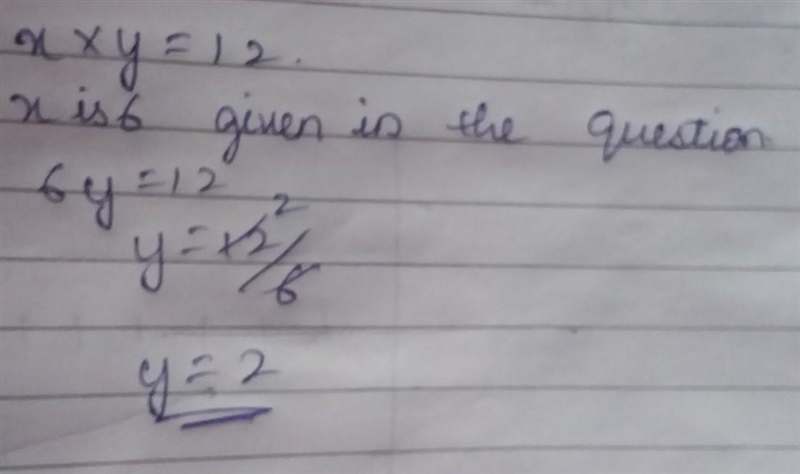 x × y = 12.
x is 6 given in the question
6y = 12
y = 12/6 2
y = 2